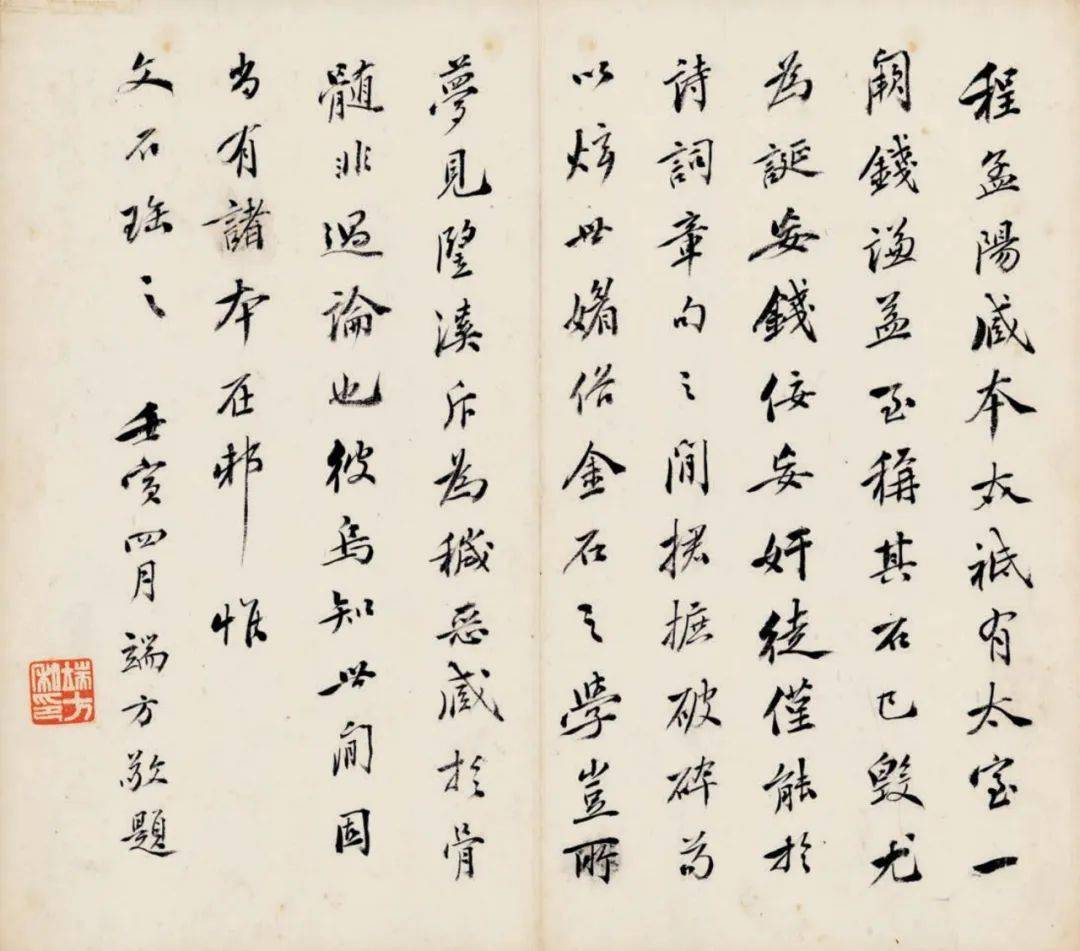 程孟陽藏本亦祗有太室一
闕錢謙益至稱其石已毀尤
為誕妄錢佞妄奸徒僅能於
詩詞章句之間捃摭破碎苟
以炫世媚俗金石之學豈所
夢見墾溪斥為穢惡藏於骨
髓非過論也彼烏知世間固
尚有諸本在邪 惟
文石珤之 壬寅四月端方敬題
端方私印